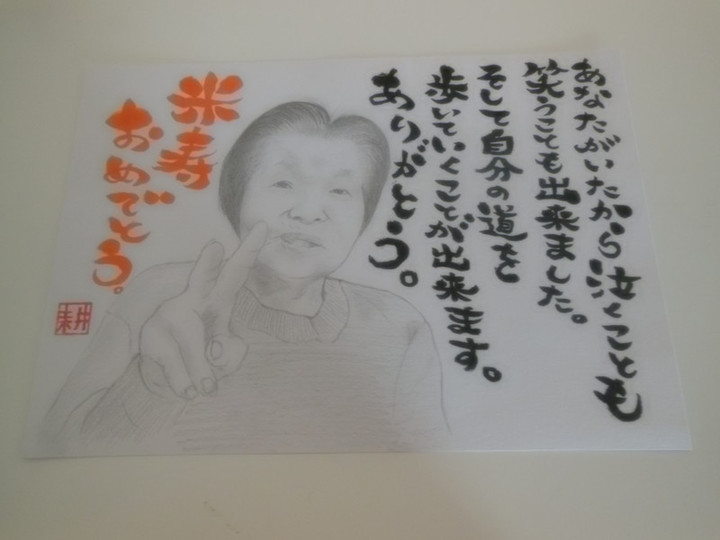 あなたがいたから泣くことも
笑うことも出来ました。
そして自分の道を
歩いていくことが出来ます。
ありがとう。
米寿
おめでとう。
耕